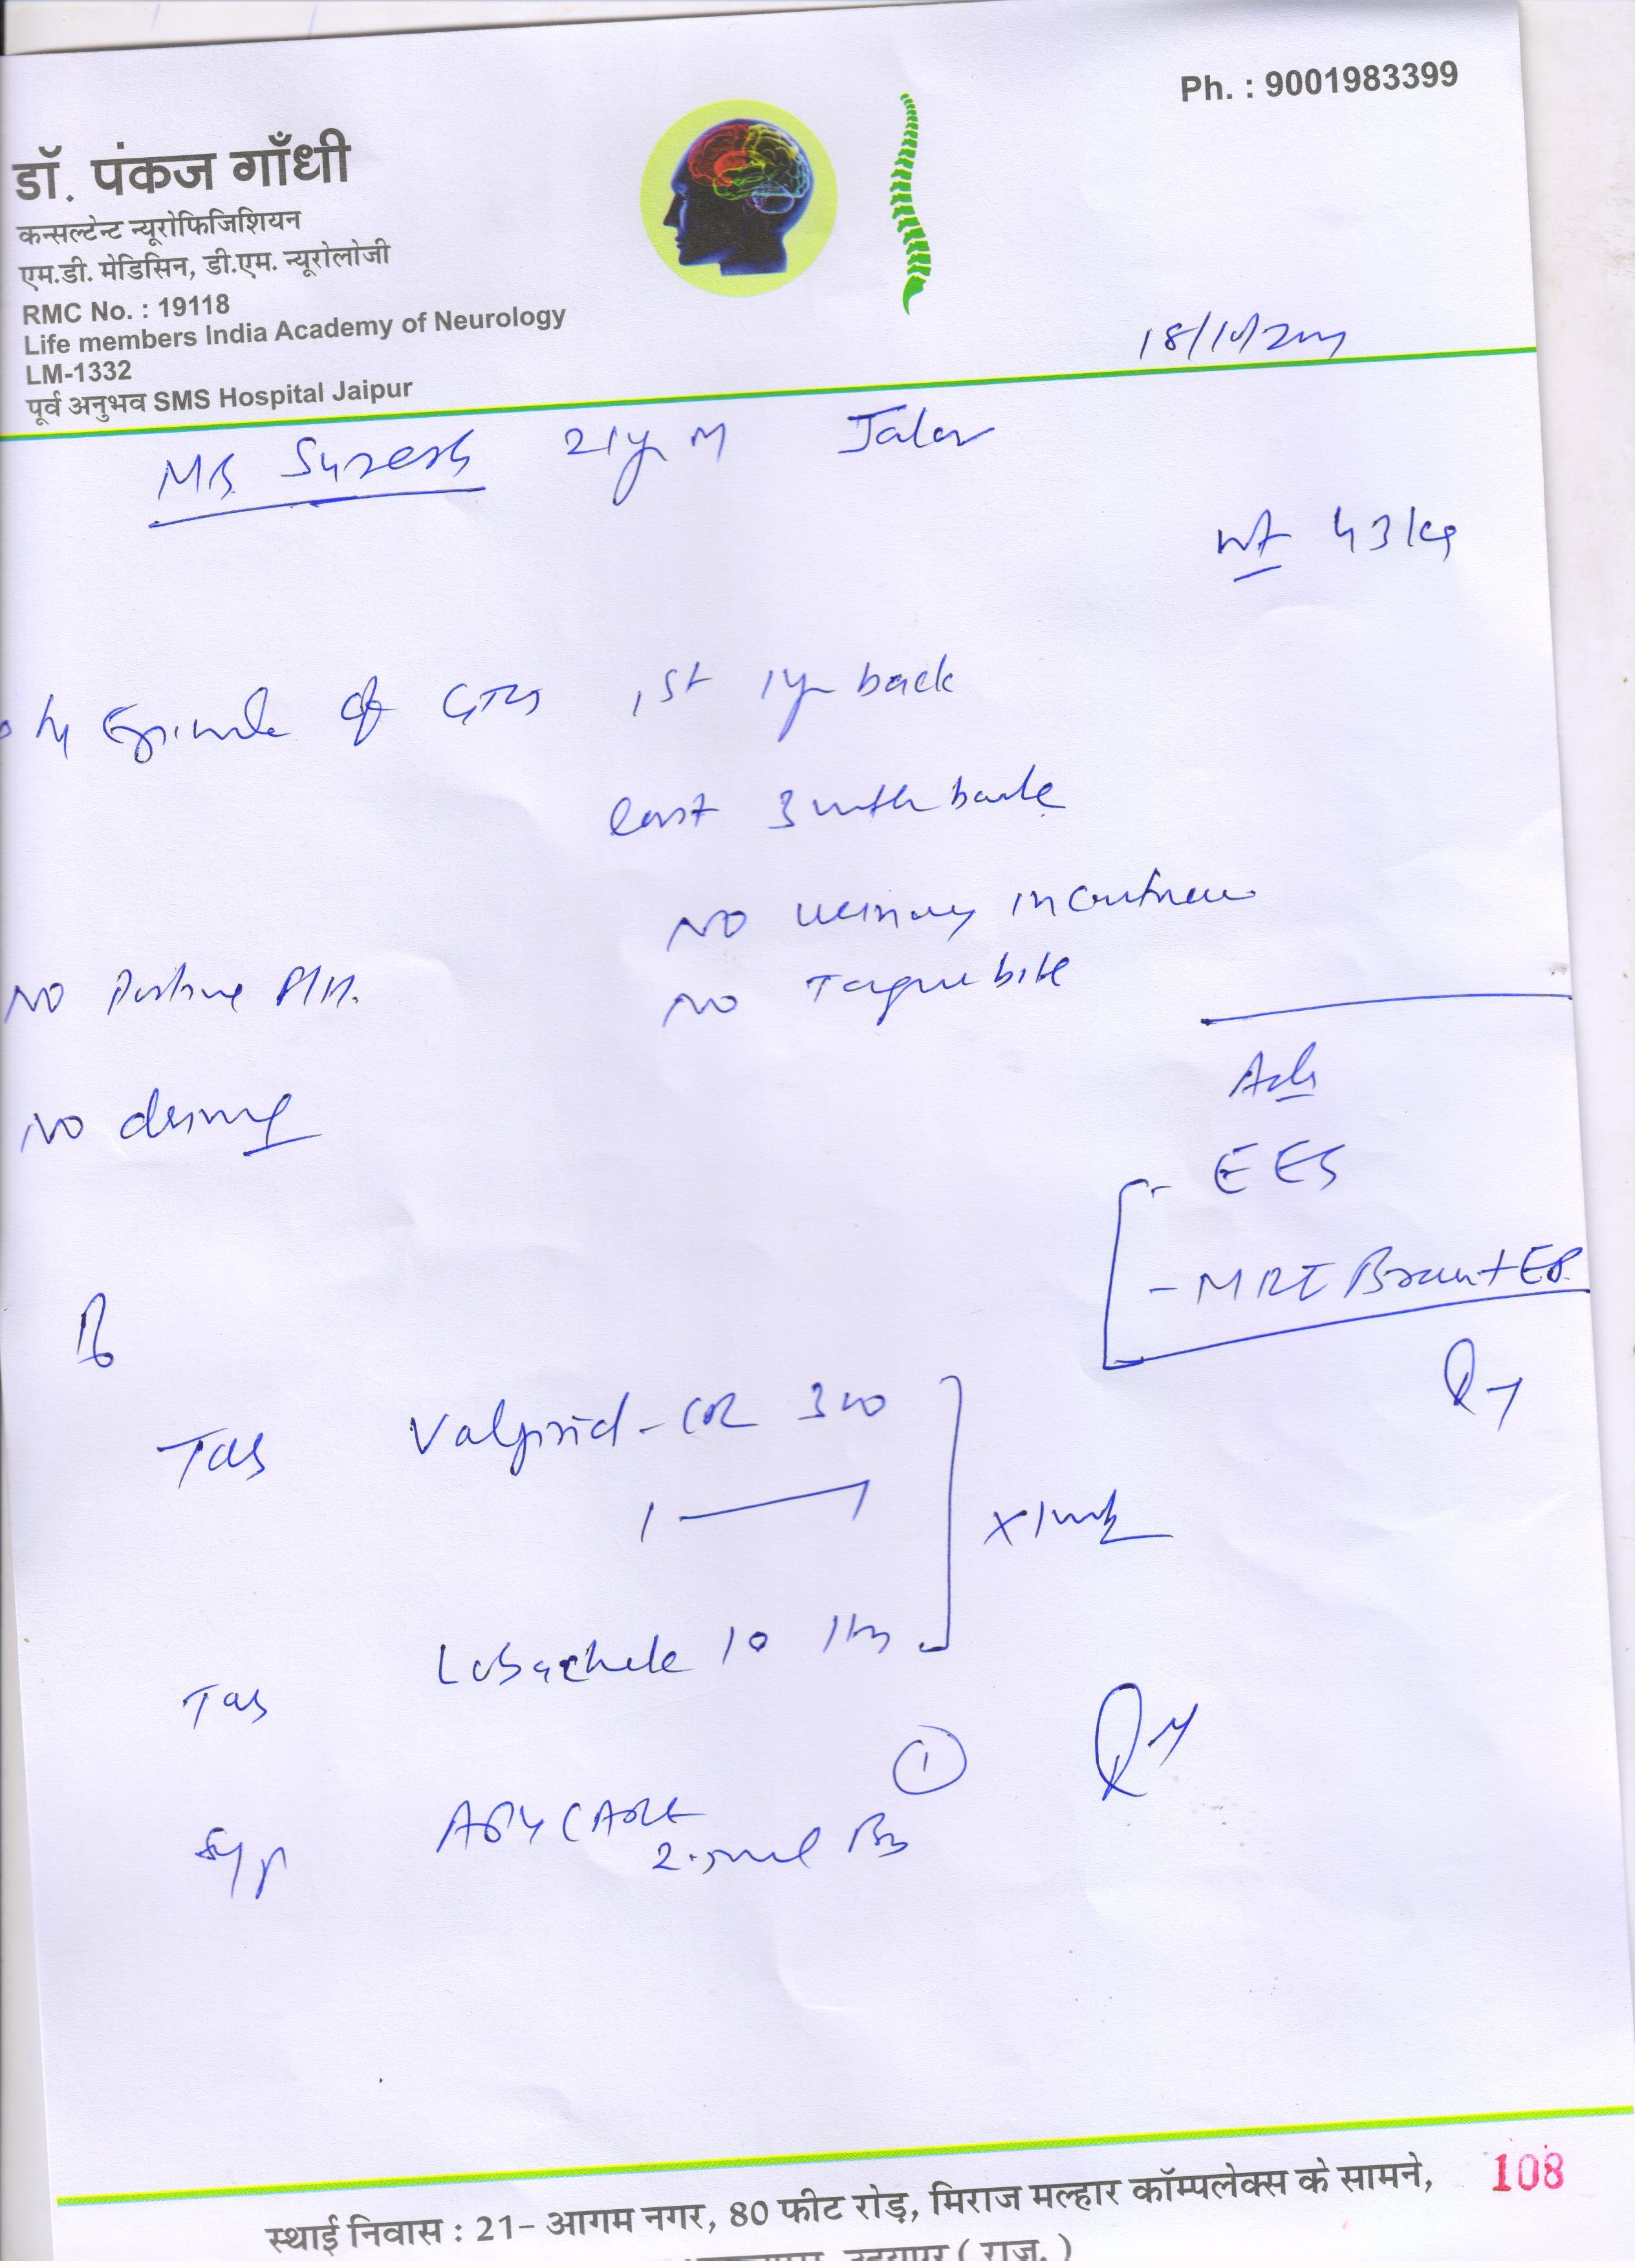 Ph. : 9001983399
डॉ. पंकज गाँधी
कन्सल्टेन्ट न्यूरोफिजिशियन
एम.डी. मेडिसिन, डी.एम. न्यूरोलोजी
RMC No. : 19118
Life members India Academy of Neurology
LM-1332
पूर्व अनुभव SMS Hospital Jaipur
Suresh 21yr M Jalor
wt 43 kg
Episode of GTCS 1st 1yr back
last 3 mth back
No urinary incontinence
No Positive P/H.
No Tongue bite
No driving
Adv
- EEG
- MRI Brain +
Tab Valprid-CR 300
1 — 1
x 1 mth
Tab 10 1 HS
1
Syp
2.5ml BD
स्थाई निवास : 21- आगम नगर, 80 फीट रोड़, मिराज मल्हार कॉम्पलेक्स के सामने,
108
उदयपुर ( राज. )